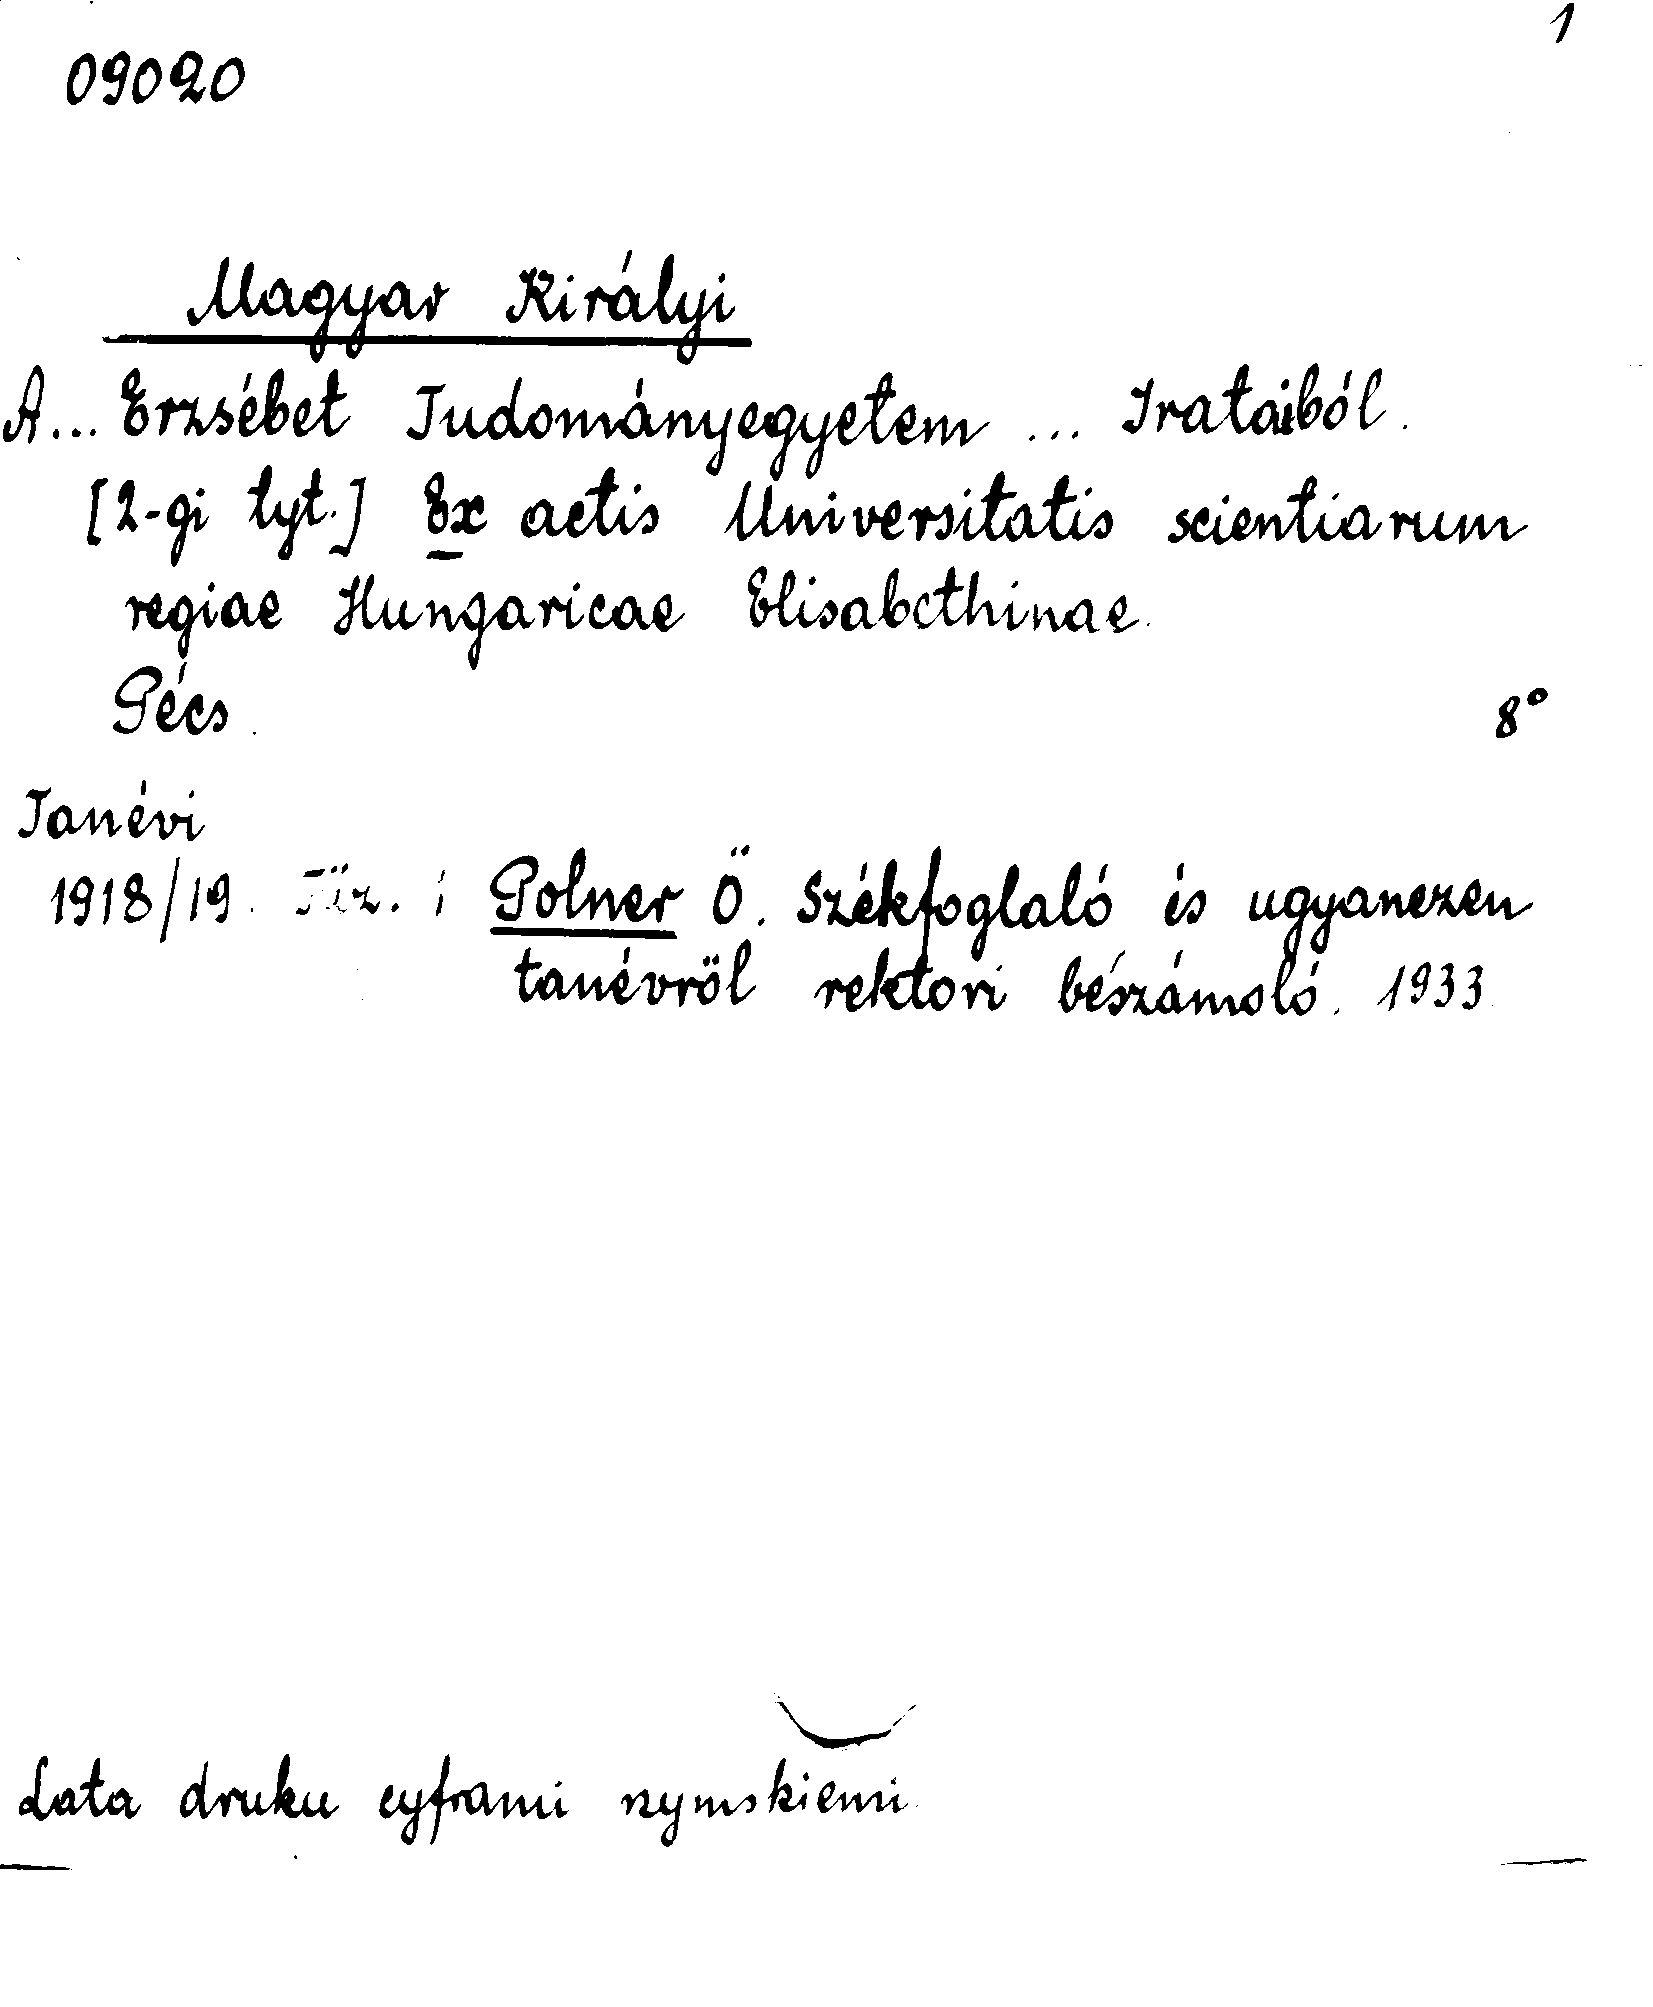 1
09020
Magyar Királyi
A... Erzsébet Tudományegyetem ... Irataiból.
[2-gi tyt.] Ex actis Universitatis scientiarum
regiae Hungaricae Elisabethinae.
Pécs. 8°
Tanévi
1918/19. Füz. i Polner Ö. Székfoglaló és ugyanezen
tanévről rektori bészámoló. 1933.
Lata druku cyframi rzymskiemi.